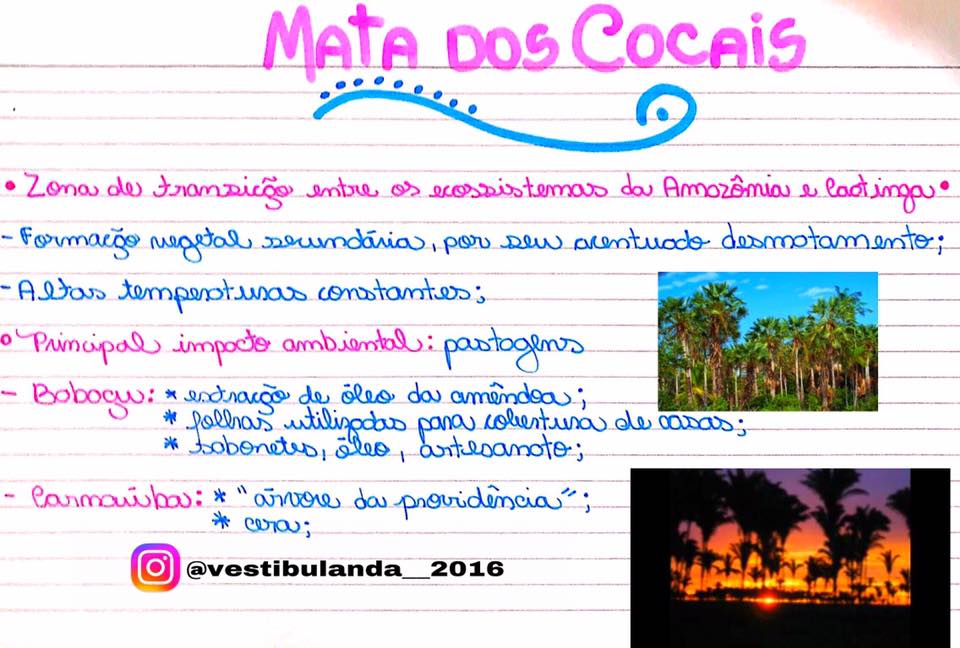 MATA DOS COCAIS
• Zona de transição entre os ecossistemas da Amazônia e Caatinga •
- Formação vegetal secundária, por seu acentuado desmatamento;
- Altas temperaturas constantes;
° Principal impacto ambiental: pastagens
- Babaçu: * extração de óleo da amêndoa;
* folhas utilizadas para cobertura de casas;
* sabonetes, óleo, artesanato;
- Carnaúba: * "árvore da providência";
* cera;
@vestibulanda__2016